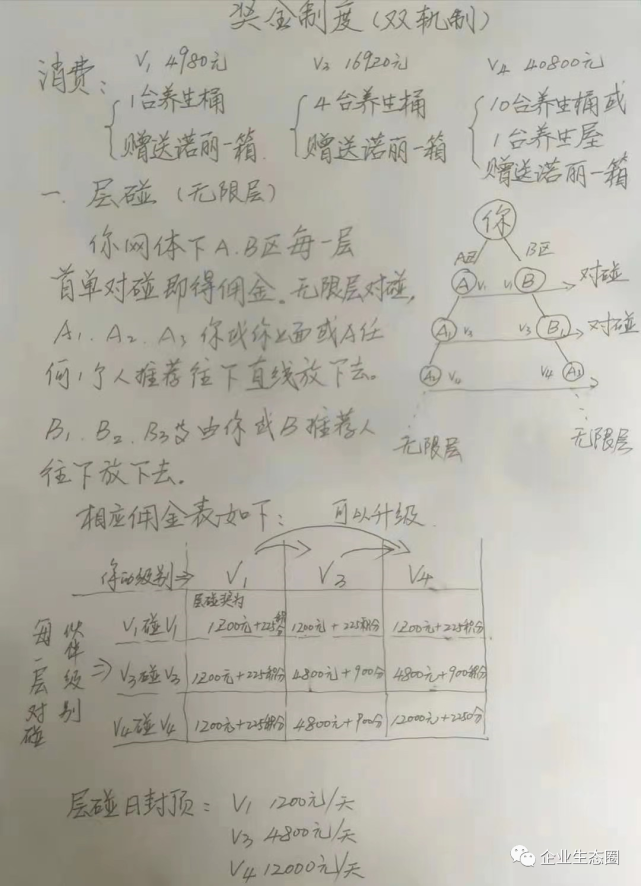 奖金制度(双轨制)
消费: V1 4980元 V3 16920元 V4 40800元
1台养生桶 4台养生桶 10台养生桶或
赠送诺丽一箱 赠送诺丽一箱 1台养生屋
赠送诺丽一箱
一、层碰(无限层)
你
你网体下A.B区每一层
A区 B区
首单对碰即得佣金。无限层对碰,
A V1 V1 B 对碰
A1、A2、A3 你或你上面或A任
A1 V3 V3 B1 对碰
何1个人推荐往下直线放下去。
A2 V4 V4 A3
B1、B2、B3等由你或B推荐人
无限层 无限层
往下放下去。
相应佣金表如下: 可以升级
你的级别⇒ V1 V3 V4
层碰奖为
每一层对碰 伙伴级别 ⇒
V1碰V1 1200元+225积分 1200元+225积分 1200元+225积分
V3碰V3 1200元+225积分 4800元+900分 4800元+900积分
V4碰V4 1200元+225积分 4800元+900分 12000元+2250分
层碰日封顶: V1 1200元/天
V3 4800元/天
V4 12000元/天
企业生态圈